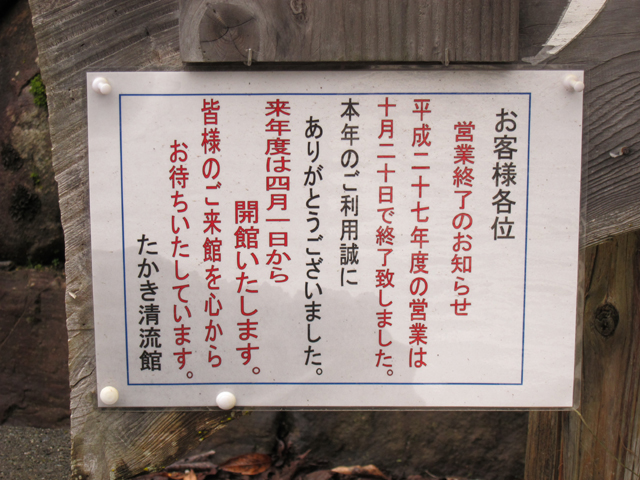 お客様各位
営業終了のお知らせ
平成二十七年度の営業は
十月二十日で終了致しました。
本年のご利用誠に
ありがとうございました。
来年度は四月一日から
開館いたします。
皆様のご来館を心から
お待ちいたしています。
たかき清流館